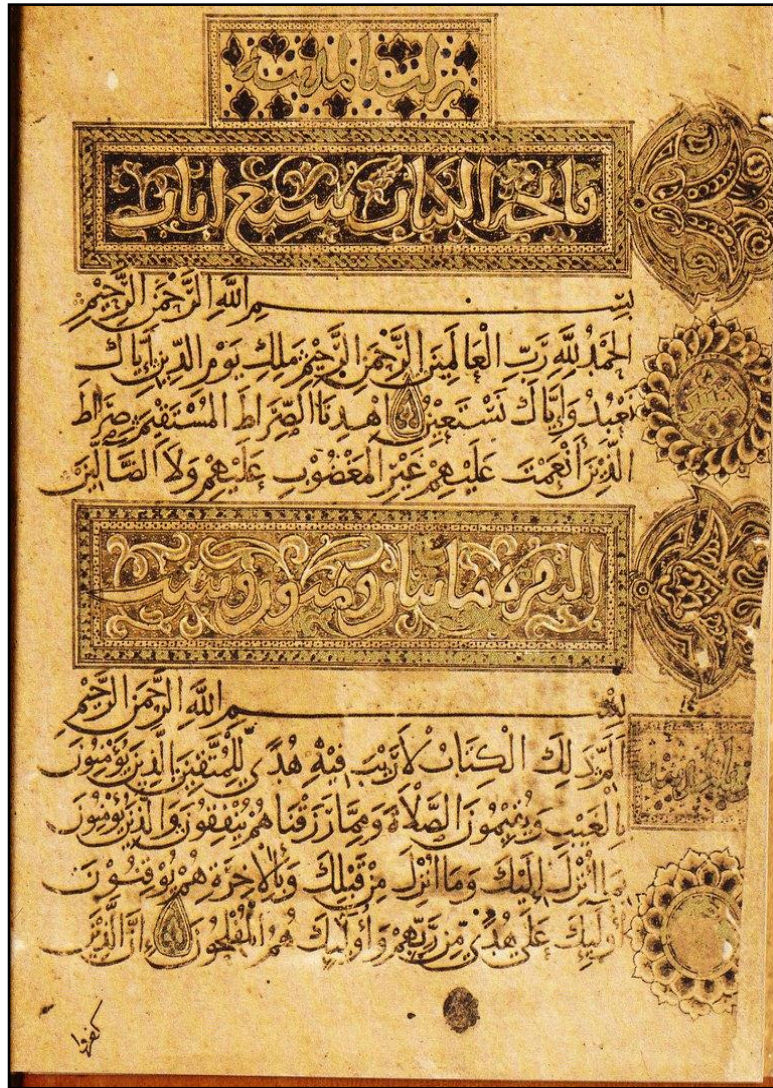 نزلت بالمدينة
فاتحة الكتاب سبع ايات
بِسْمِ اللَّهِ الرَّحْمَنِ الرَّحِيمِ
الْحَمْدُ لِلَّهِ رَبِّ الْعَالَمِينَ الرَّحْمَنِ الرَّحِيمِ مَلِكِ يَوْمِ الدِّينِ إِيَّاكَ
نَعْبُدُ وَإِيَّاكَ نَسْتَعِينُ اهْدِنَا الصِّرَاطَ الْمُسْتَقِيمَ صِرَاطَ
الَّذِينَ أَنْعَمْتَ عَلَيْهِمْ غَيْرِ الْمَغْضُوبِ عَلَيْهِمْ وَلَا الضَّالِّينَ
البقرة مائتان و وست
بِسْمِ اللَّهِ الرَّحْمَنِ الرَّحِيمِ
الم ذَلِكَ الْكِتَابُ لَا رَيْبَ فِيهِ هُدًى لِلْمُتَّقِينَ الَّذِينَ يُؤْمِنُونَ
بِالْغَيْبِ وَيُقِيمُونَ الصَّلَاةَ وَمِمَّا رَزَقْنَاهُمْ يُنْفِقُونَ وَالَّذِينَ يُؤْمِنُونَ
بِمَا أُنْزِلَ إِلَيْكَ وَمَا أُنْزِلَ مِنْ قَبْلِكَ وَبِالْآخِرَةِ هُمْ يُوقِنُونَ
أُولَئِكَ عَلَى هُدًى مِنْ رَبِّهِمْ وَأُولَئِكَ هُمُ الْمُفْلِحُونَ إِنَّ الَّذِينَ
كفروا